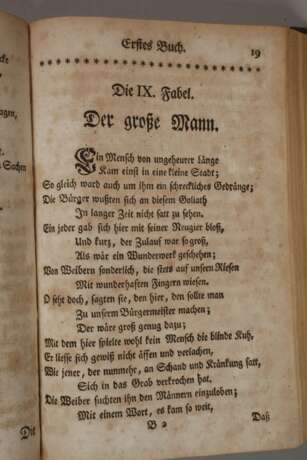 cke
Erstes Buch. 19
Die IX. Fabel.
Der große Mann.
agen,
Ein Mensch von ungeheurer Länge
Kam einst in eine kleine Stadt;
Sachen
So gleich ward auch um ihn ein schreckliches Gedränge;
Die Bürger wußten sich an diesem Goliath
In langer Zeit nicht satt zu sehen.
Ein jeder gab sich hier mit seiner Neugier bloß,
Und kurz, der Zulauf war so groß,
Als wär ein Wunderwerk geschehen;
Von Weibern sonderlich, die stets auf unsern Riesen
Mit wunderhaften Fingern wiesen.
O seht doch, sagten sie, den hier, den sollte man
Zu unserm Bürgermeister machen;
Der wäre groß genug dazu;
Mit dem hier spielte wohl kein Mensch die blinde Kuh,
Er liesse sich gewiß nicht äffen und verlachen,
Wie jener, der nunmehr, an Schand und Kränkung satt,
Sich in das Grab verkrochen hat.
Die Weiber suchten ihn den Männern einzuloben;
Mit einem Wort, es kam so weit,
Dit
B 2 Daß